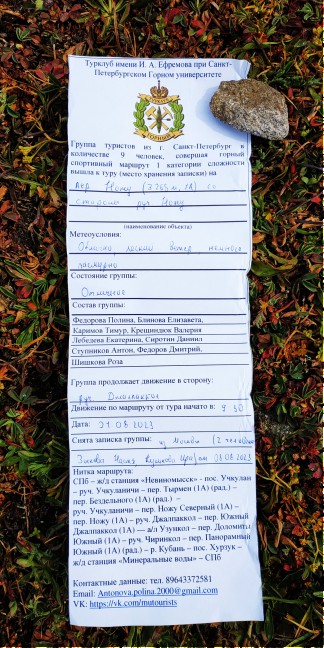 Турклуб имени И. А. Ефремова при Санкт-
Петербургском Горном университете
ГОРНЫЙ
Группа туристов из г. Санкт-Петербург в
количестве 9 человек, совершая горный
спортивный маршрут 1 категории сложности
вышла к туру (место хранения записки) на
пер. Ножу 1А) со
стороны руч Ножу
(наименование объекта)
Метеоусловия:
ветер немного
пасмурно
Состояние группы:
Отличное
Состав группы:
Федорова Полина, Блинова Елизавета,
Каримов Тимур, Крещиндюк Валерия
Лебедева Екатерина, Сиротин Даниил
Ступников Антон, Федоров Дмитрий,
Шишкова Роза
Группа продолжает движение в сторону:
руч. Джалпаккол
Движение по маршруту от тура начато в: 9 30
Дата: 21 08 2023
Снята записка группы: Москвы (2 человека)
08 2023
Нитка маршрута:
СПб – ж/д станция «Невинномысск» - пос. Учкулан
– руч. Учкуланичи – пер. Тырмен (1А) (рад.) –
пер. Бездельного (1А) (рад.) –
руч. Учкуланичи – пер. Ножу Северный (1А) –
пер. Ножу (1А) – руч. Джалпаккол – пер. Южный
Джалпаккол (1А) — а/л Узункол – пер. Доломиты
Южный (1А) – руч. Чиринкол – пер. Панорамный
Южный (1А) (рад.) – р. Кубань – пос. Хурзук –
ж/д станция «Минеральные воды» – СПб
Контактные данные: тел. 89643372581
Email: Antonova.polina.2000@gmail.com
VK: https://vk.com/mutourists